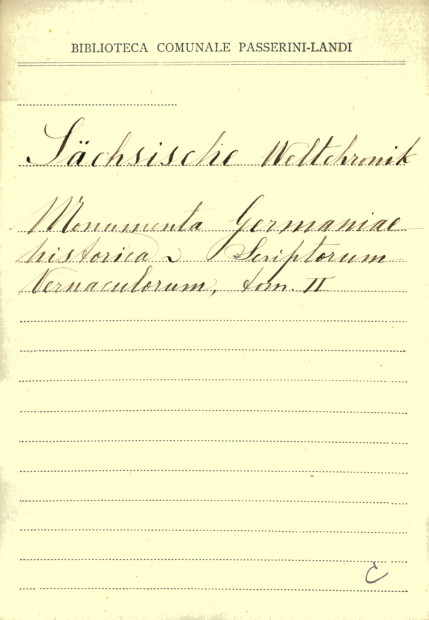 BIBLIOTECA COMUNALE PASSERINI-LANDI
Sächsische Weltchronik
Monumenta Germaniae
historica ~ Scriptorum
Vernaculorum, tom. II
C